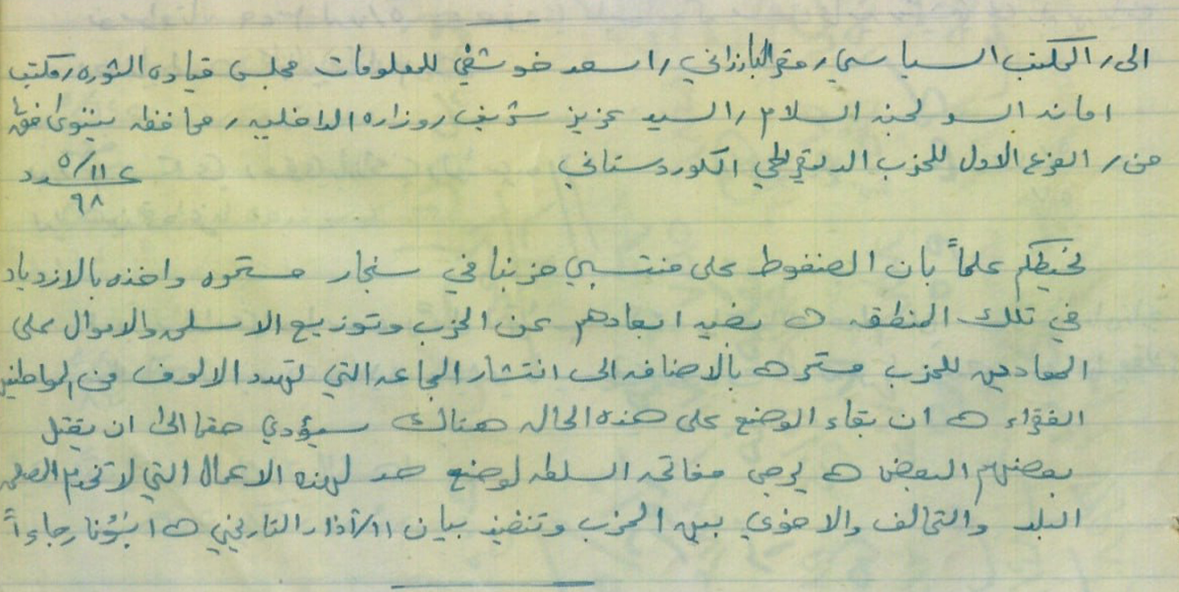 الى / المكتب السياسي / مقر البارزاني / اسعد خوشفي للمعلومات مجلس قيادة الثوره / مكتب
امانه السر لجنه السلام / السيد عزيز شريف / وزاره الداخليه / محافظه نينوى
من / الفرع الاول للحزب الديمقراطي الكوردستاني
عدد ٥/١١
٩٨
نحيطكم علماً بان الضغوط على منتسبي حزبنا في سنجار مستمره واخذه بالازدياد
في تلك المنطقه ابعادهم عن الحزب وتوزيع الاسلحه والاموال على
المعادين للحزب مستمره بالاضافه الى انتشار المجاعه التي تهدد الالوف من المواطنين
الفقراء ان بقاء الوضع على هذه الحاله هناك سيؤدي حتما الى ان يقتل
بعضهم البعض يرجى مفاتحه السلطه لوضع حد لهذه الاعمال التي لا تخدم
البلد والتحالف والاخوي بين الحزب وتنفيذ بيان ١١/آذار التاريخي رجاءاً